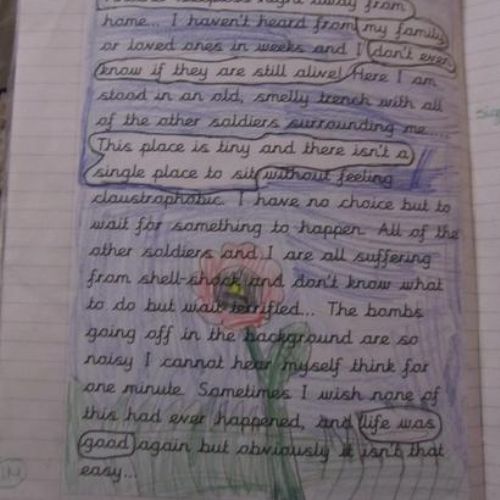 night away from
home... I haven't heard from my family
or loved ones in weeks and I don't even
know if they are still alive! Here I am
stood in an old, smelly trench with all
of the other soldiers surrounding me....
This place is tiny and there isn't a
single place to sit without feeling
claustraphobic. I have no choice but to
wait for something to happen. All of the
other soldiers and I are all suffering
from shell-shock and don't know what
to do but wait terrified... The bombs
going off in the background are so
noisy I cannot hear myself think for
one minute. Sometimes I wish none of
this had ever happened, and life was
good again but obviously it isn't that
easy...